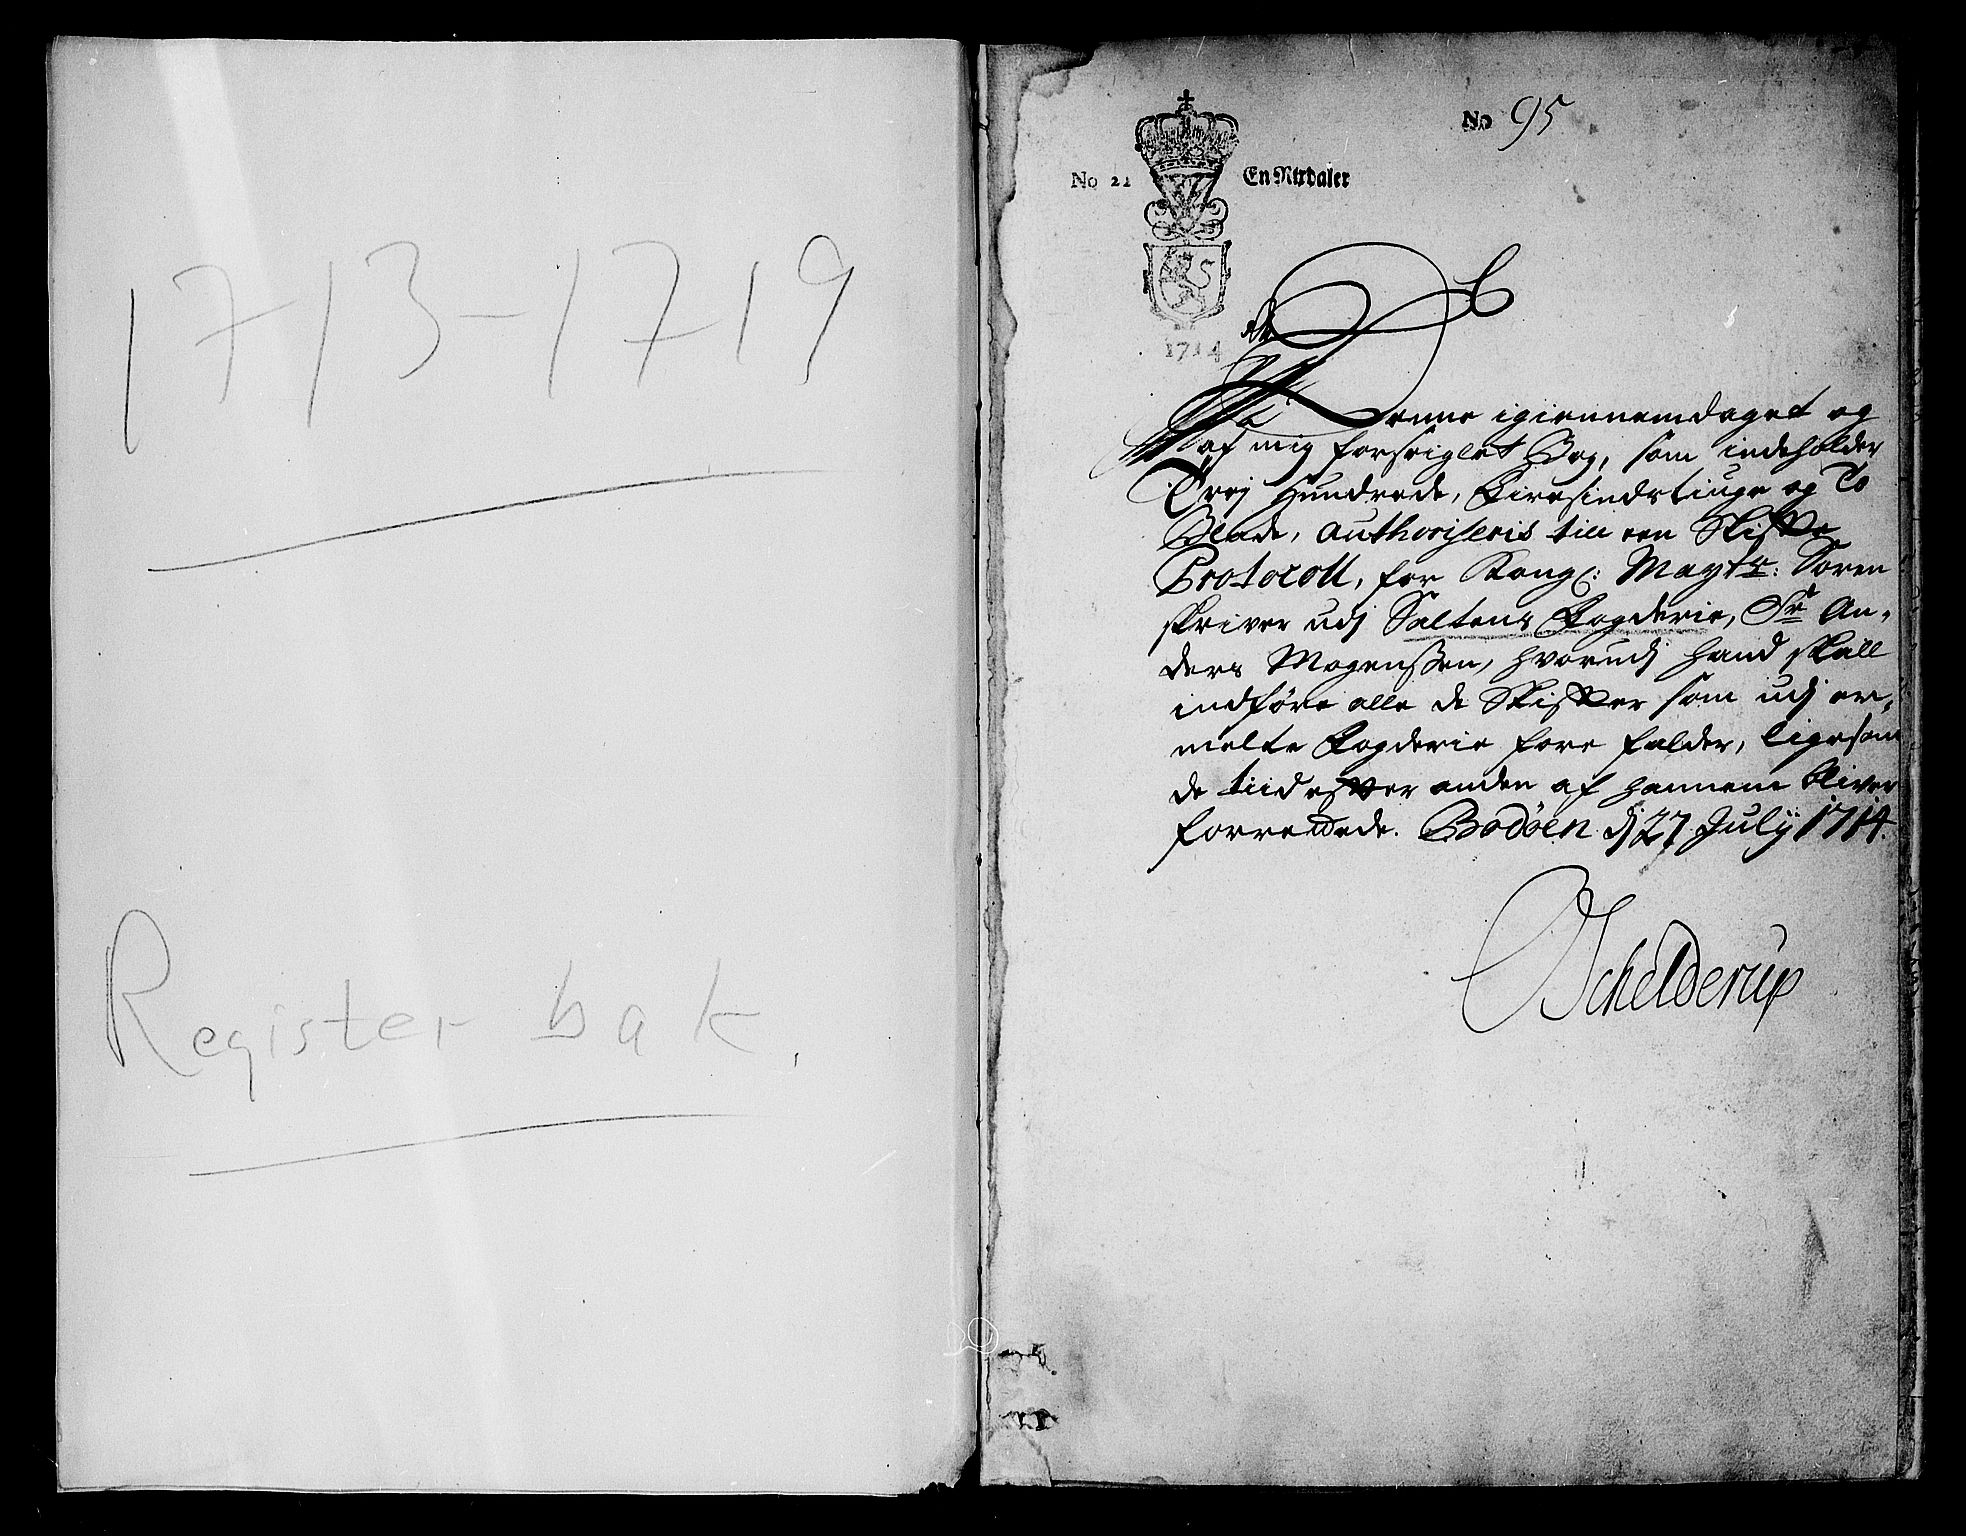 1713-1719
Register bak.
No 95
No 21 En Rixdaler
1714
Denne igiennemdraget og
af mig forseiglet Bog, som indeholder
Trej Hundrede, Firesindstiuge og To
Blade, Authoriseris till een Skifte
Protocoll, for Kongl: Mayts: Soren
skriver udj Saltens Fogderie, Sr An-
ders Mogenssen, hvorudj hand skall
indføre alle de Skifter som udj er-
melte Fogderie fore falder, ligesom
de tiid efter anden af hannem bliver
forrettede. Bodøen dj 27 July 1714.
Schelderup